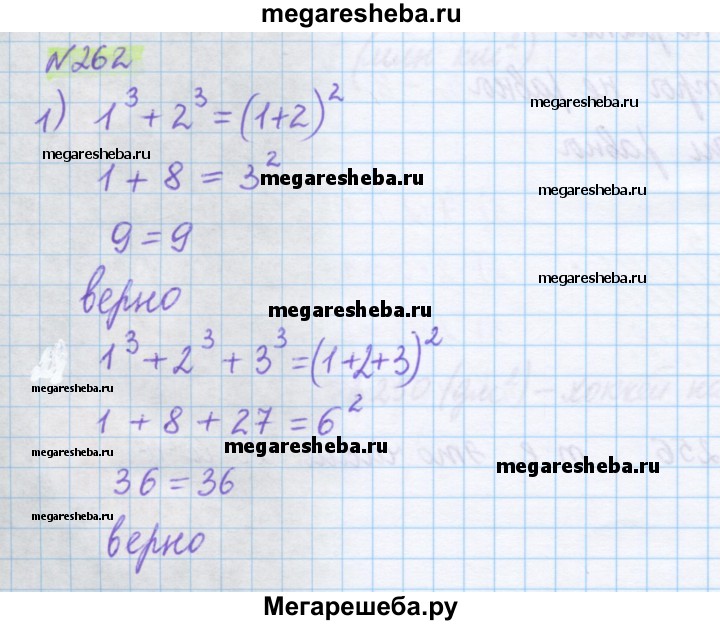 megaresheba.ru
№262
1) 1³ + 2³ = (1+2)²
megaresheba.ru
megaresheba.ru
1 + 8 = 3²
megaresheba.ru
megaresheba.ru
9 = 9
megaresheba.ru
верно
megaresheba.ru
1³ + 2³ + 3³ = (1+2+3)²
megaresheba.ru
1 + 8 + 27 = 6²
megaresheba.ru
megaresheba.ru
megaresheba.ru
36 = 36
megaresheba.ru
верно
Мегарешеба.ру